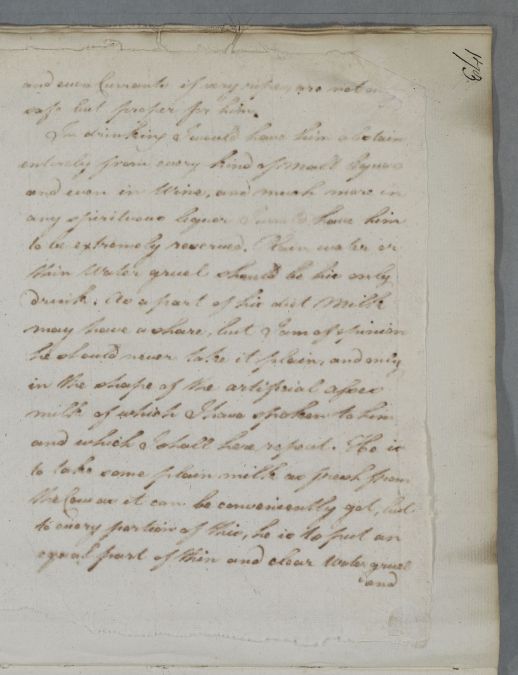 173
and even Currants if very ripe, are not only
safe but proper for him.
In drinking I would have him abstain
entirely from every kind of malt liquor
and even in Wine, and much more in
any spirituous liquor I would have him
to be extremely reserved. Plain water or
thin Water gruel should be his only
drink. As a part of his diet Milk
may have a share, but I am of opinion
he should never take it plain, and only
in the shape of the artificial asses
milk of which I have spoken to him
and which I shall here repeat. He is
to take some plain milk as fresh from
the Cow as it can be conveniently got, but
to every portion of this, he is to put an
equal part of thin and clear Water gruel
and